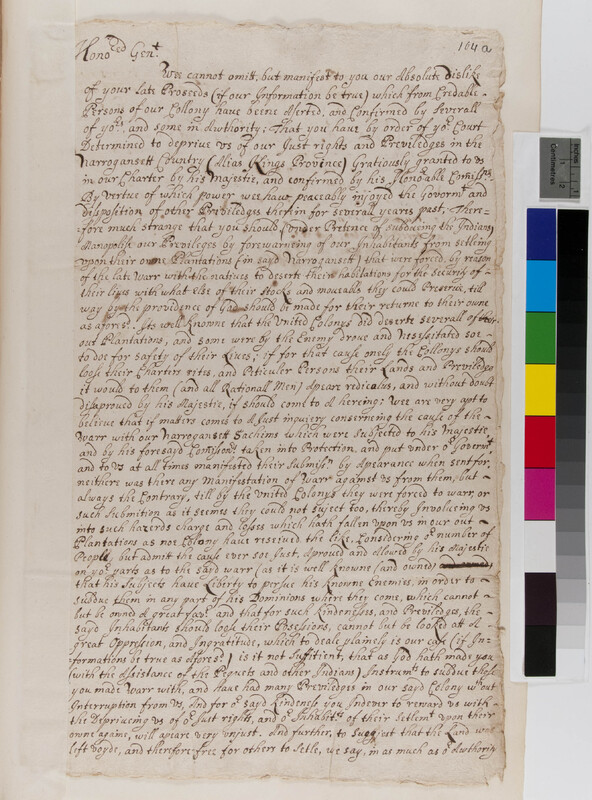 104a
Honored Gent
Wee cannot omitt, but manifest to you our Absolute dislike
of your late Proseeds (if our Information be true) which from Credable
Persons of our Collony have beene Aserted, and Confirmed by severall
of yor, and some in Authority; That you have by order of yor Court
Determined to deprive vs of our Just rights and Previledges in the
Narrogansett Country (Alias Kings Province) Gratiously granted to vs
in our Charter by his Majestie, and confirmed by his Honorable Comissrs
By vertue of which power wee have peaceably injoyed the Governmt and
disposition of other Previledges therein for severall years past, There-
fore much strange that you should (under Pretence of subdueing the Indians)
Manopolise our Previleges by forewarneing of our Inhabitants from setleing
upon their owne Plantations (in sayd Narrogansett) that were forced, by reason
of the late Warr with the natives to deserte their habitations for the security of
their lives with what else of their stocks and moueable they could Preserue, till
way by the providence of God should be made for their returne to their owne
as aforesd. Its well knowne that the United Colonys did deserte severall of their
out Plantations, and some were by the Enemy drove and Nesessitated soe
to doe for safety of their Lives; if for that cause onely the Collonys should
loose their Charters rites, and Peticuler Persons their Lands and Previledges
it would to them (and all Rationall Men) Apeare redicalus, and without doubt
disaproved by his Majestie, if should come to A hereing: Wee are very apt to
believe that if matters comes to A Just inquiry conserneing the cause of the
Warr with our Narrogansett Sachims which were Subjected to his Majestie
and by his foresayd Comissrs taken into Protection, and put under or Governmt
and to vs at all times manifested their Submission by Apearance when sent for,
neither was there any Manifestation of Warr against vs from them, but
always the Contrary, till by the United Colonys they were forced to warr, or
such Submition as it seems they could not suject too, thereby Involueing vs
into such hazerds charge and losses which hath fallen upon vs in our out
Plantations as noe Colony have received the like, Considering or number of
People, but admit the cause ever soe Just, Aproved and Allowed by his Majestie
on yor parts as to the sayd warr (as it is well knowne (and owned)
that his Subjects have Liberty to persue his Knowne Enemies, in order to
subdue them in any part of his Dominions where they come, which cannot
but be owned A great favr. and that for such Kindenesses, and Previledges, the
sayd Inhabitants should loose their Posessions, cannot but be looked att A
great Oppression, and Ingratitude, which to deale plainely is our case (if In-
formations be true as aforesd.) is it not Suffitient, that as God hath made you
(with the Assistance of the Pequots and other Indians) Instrumts to subdue those
you made Warr with, and have had many Previledges in our sayd Colony without
Interruption from vs, And for or sayd Kindeness you Indevor to reward us with
the Depriveing vs of or Just rights, and or Inhabitts of their Setlemt upon their
owne againe, will apeare very unjust. And further, to suggjest that the Land was
left voyde, and therefore free for others to setle, we say, in as much as or Authority
Centimetres
Inches